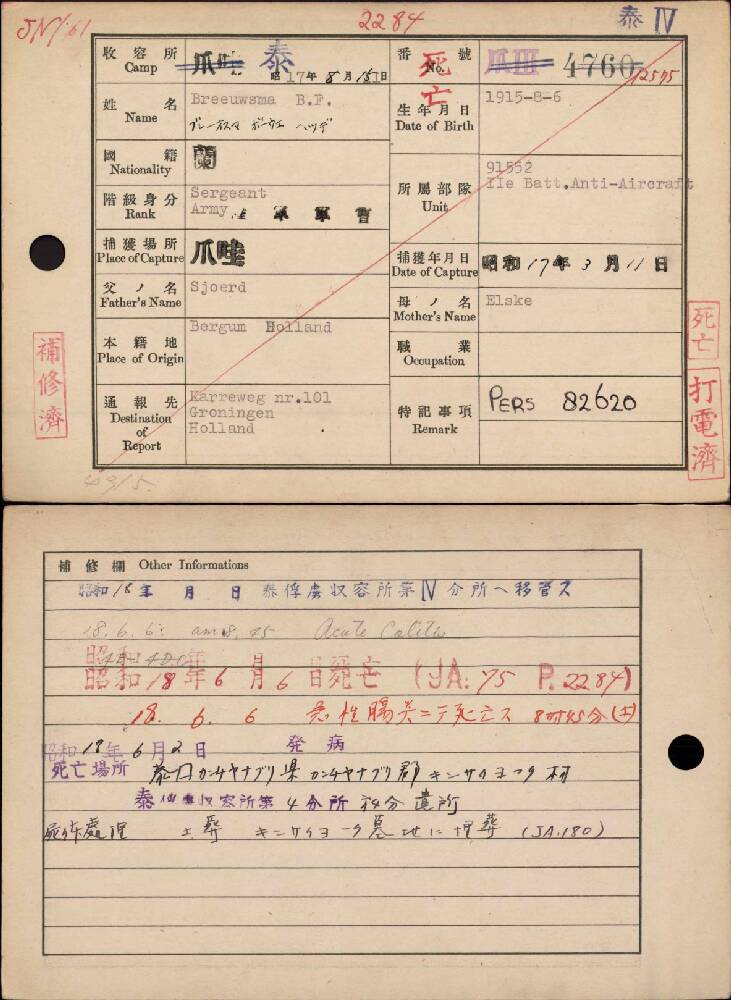 2284
泰 IV
收容所 Camp 爪哇 泰 昭17年8月15日
番號 No. 爪III 4760 12575
死亡
姓名 Name Breeuwsma B.F.
生年月日 Date of Birth 1915-8-6
國籍 Nationality 蘭
階級身分 Rank Sergeant
Army
所屬部隊 Unit 91552
IIe Batt.Anti-Aircraft
捕獲場所 Place of Capture 爪哇
捕獲年月日 Date of Capture 昭和17年3月11日
父ノ名 Father's Name Sjoerd
母ノ名 Mother's Name Elske
本籍地 Place of Origin Bergum Holland
職業 Occupation
通報先 Destination of Report Karreweg nr.101
Groningen
Holland
特記事項 Remark PERS 82620
補修濟
死亡
打電濟
補修欄 Other Informations
昭和18年 月 日 泰俘虜収容所第IV分所ヘ移管ス
18.6.6: am 8.45 Acute Colitis
昭和18年6月6日死亡 (JA: 75 P. 2284)
18. 6. 6 急性腸炎ニテ死亡ス 8時45分(土)
昭和18年6月2日 発病
死亡場所 泰国カンチヤナブリ県カンチヤナブリ郡キンサイヨーク村
泰俘虜収容所第4分所
死体處理 土葬 キンサイヨーク墓地に埋葬 (JA.180)